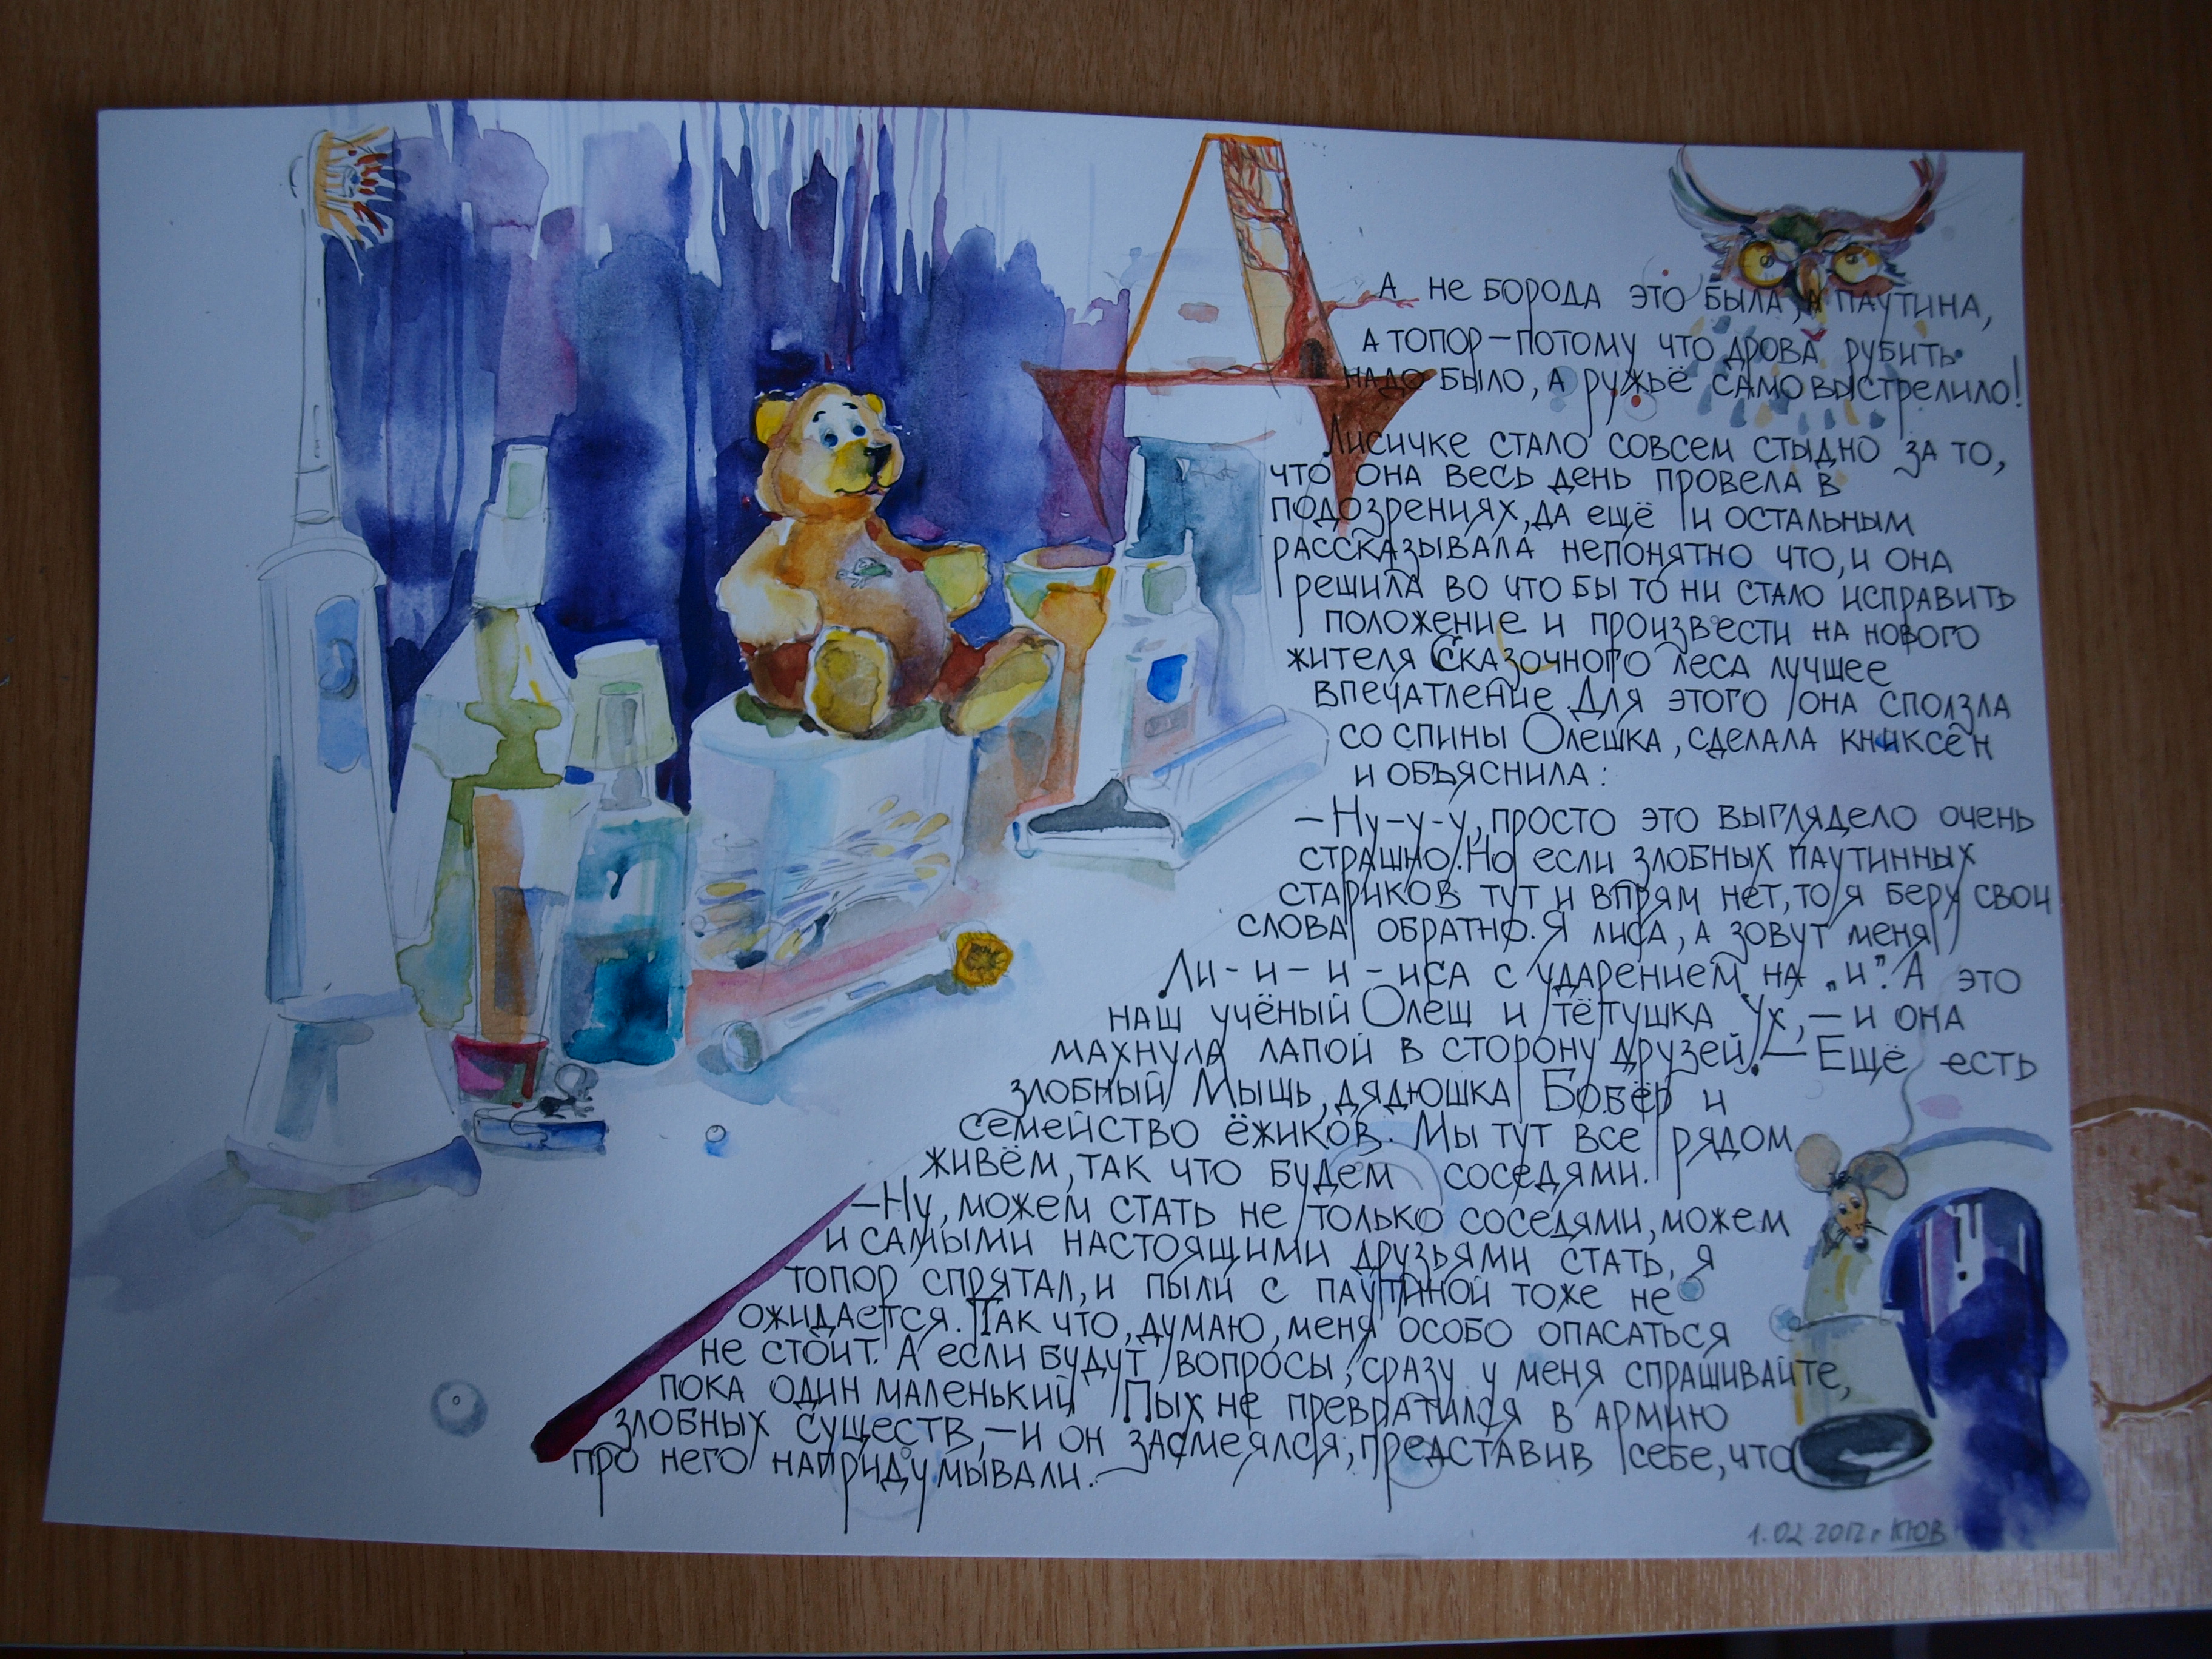 А не борода это была, а паутина,
а топор — потому что дрова рубить
надо было, а ружьё само выстрелило!
Лисичке стало совсем стыдно за то,
что она весь день провела в
подозрениях, да ещё и остальным
рассказывала непонятно что, и она
решила во что бы то ни стало исправить
положение и произвести на нового
жителя Сказочного леса лучшее
впечатление. Для этого она сползла
со спины Олешка, сделала книксен
и объяснила:
— Ну-у-у, просто это выглядело очень
страшно. Но если злобных паутинных
стариков тут и впрям нет, то я беру свои
слова обратно. Я лиса, а зовут меня
Ли-и-и-иса с ударением на „и". А это
наш учёный Олеш и тётушка Ух, — и она
махнула лапой в сторону друзей. — Ещё есть
злобный Мышь, дядюшка Бобёр и
семейство ёжиков. Мы тут все рядом
живём, так что будем соседями.
— Ну, можем стать не только соседями, можем
и самыми настоящими друзьями стать, я
топор спрятал, и пыли с паутиной тоже не
ожидается. Так что, думаю, меня особо опасаться
не стоит. А если будут вопросы, сразу у меня спрашивайте,
пока один маленький Пых не превратился в армию
злобных существ, — и он засмеялся, представив себе, что
про него напридумывали.
1.02.2012 г КЮВ